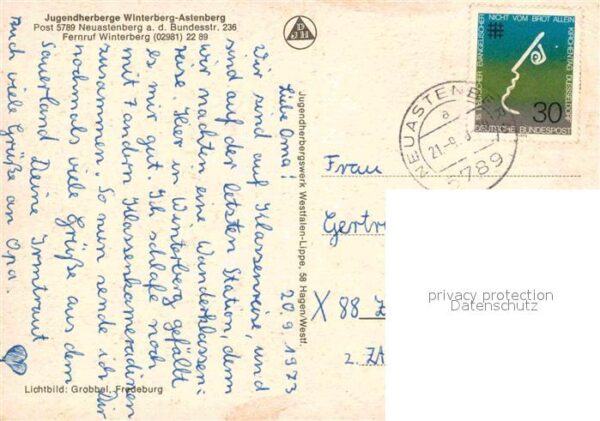 Jugendherberge Winterberg-Astenberg
Post 5789 Neuastenberg a. d. Bundesstr. 236
Fernruf Winterberg (02981) 22 89
20.9.1973
Liebe Oma!
Wir sind auf Klassenreise, und
sind auf der letzten Station, denn
wir machten eine Wanderklassen-
reise. Hier in Winterberg gefällt
es mir gut. Ich schlafe noch
mit 7 andern Klassenkameradinnen
zusammen. So nun sende ich Dir
nochmals viele Grüße aus dem
Sauerland Deine Irmtraut
Auch viele Grüße an Opa.
Lichtbild: Grobbel, Fredeburg
DJH
Jugendherbergswerk Westfalen-Lippe, 58 Hagen/Westf.
NICHT VOM BROT ALLEIN
DEUTSCHER EVANGELISCHER KIRCHENTAG DÜSSELDORF
30
DEUTSCHE BUNDESPOST
NEUASTENBE
a
21-9.
5789
Frau
Gertr
X 88 Z
2. ZA
privacy protection
Datenschutz